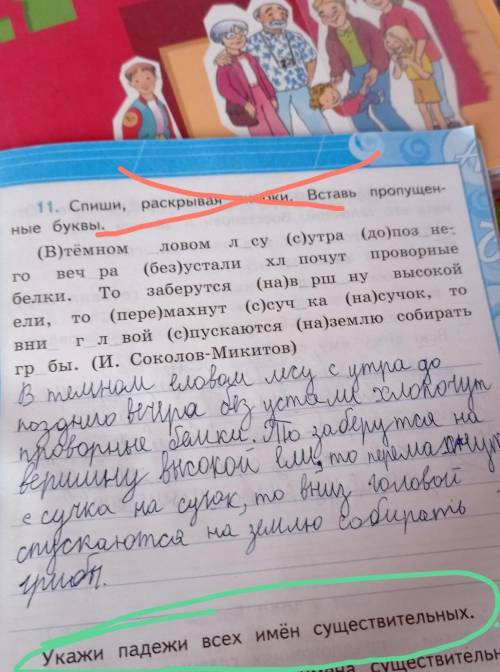 11. Спиши, раскрывая скобки. Вставь пропущен-
ные буквы.
(В)тёмном _ловом л_су (с)утра (до)поз_не-
го веч_ра (без)устали хл_почут проворные
белки. То заберутся (на)в_рш_ну высокой
ели, то (пере)махнут (с)суч_ка (на)сучок, то
вни_ г_л_вой (с)пускаются (на)землю собирать
гр_бы. (И. Соколов-Микитов)
В темном еловом лесу с утра до
позднего вечера без устали хлопочут
проворные белки. То заберутся на
вершину высокой ели, то перемахнут
с сучка на сучок, то вниз головой
спускаются на землю собирать
Укажи падежи всех имён существительных.
существитель